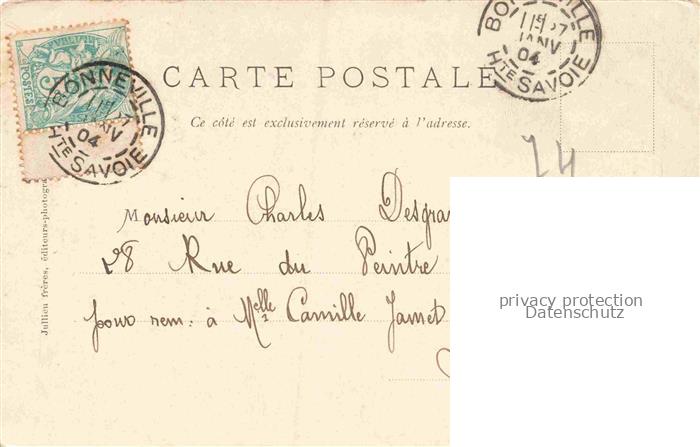 BONNEVILLE
JANV
04
HTE SAVOIE
BONNEVILLE
JANV
04
HTE SAVOIE
POSTES
CARTE POSTALE
Ce côté est exclusivement réservé à l'adresse.
74
Monsieur Charles Desgra
28 Rue du Peintre
pour rem: à Melle Camille Jamet
Jullien frères, éditeurs-photogra
privacy protection
Datenschutz